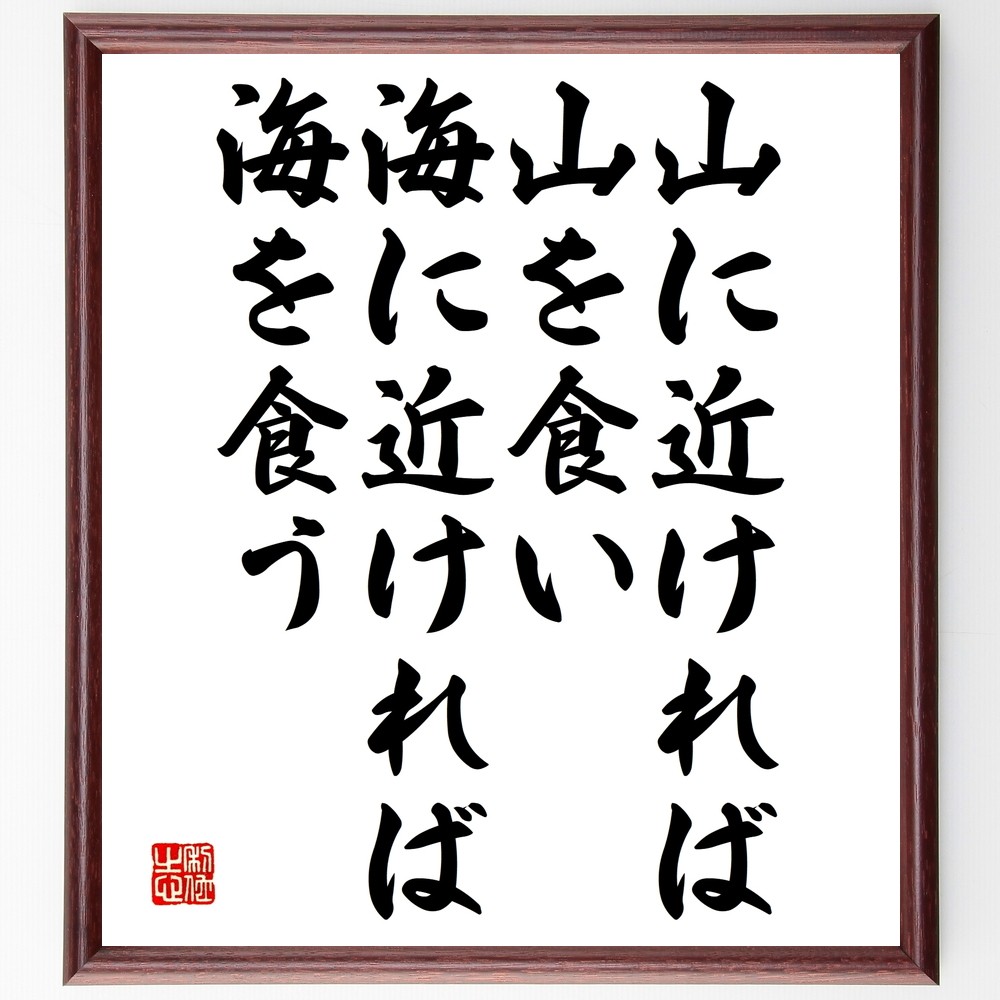 山に近ければ
山を食い
海に近ければ
海を食う